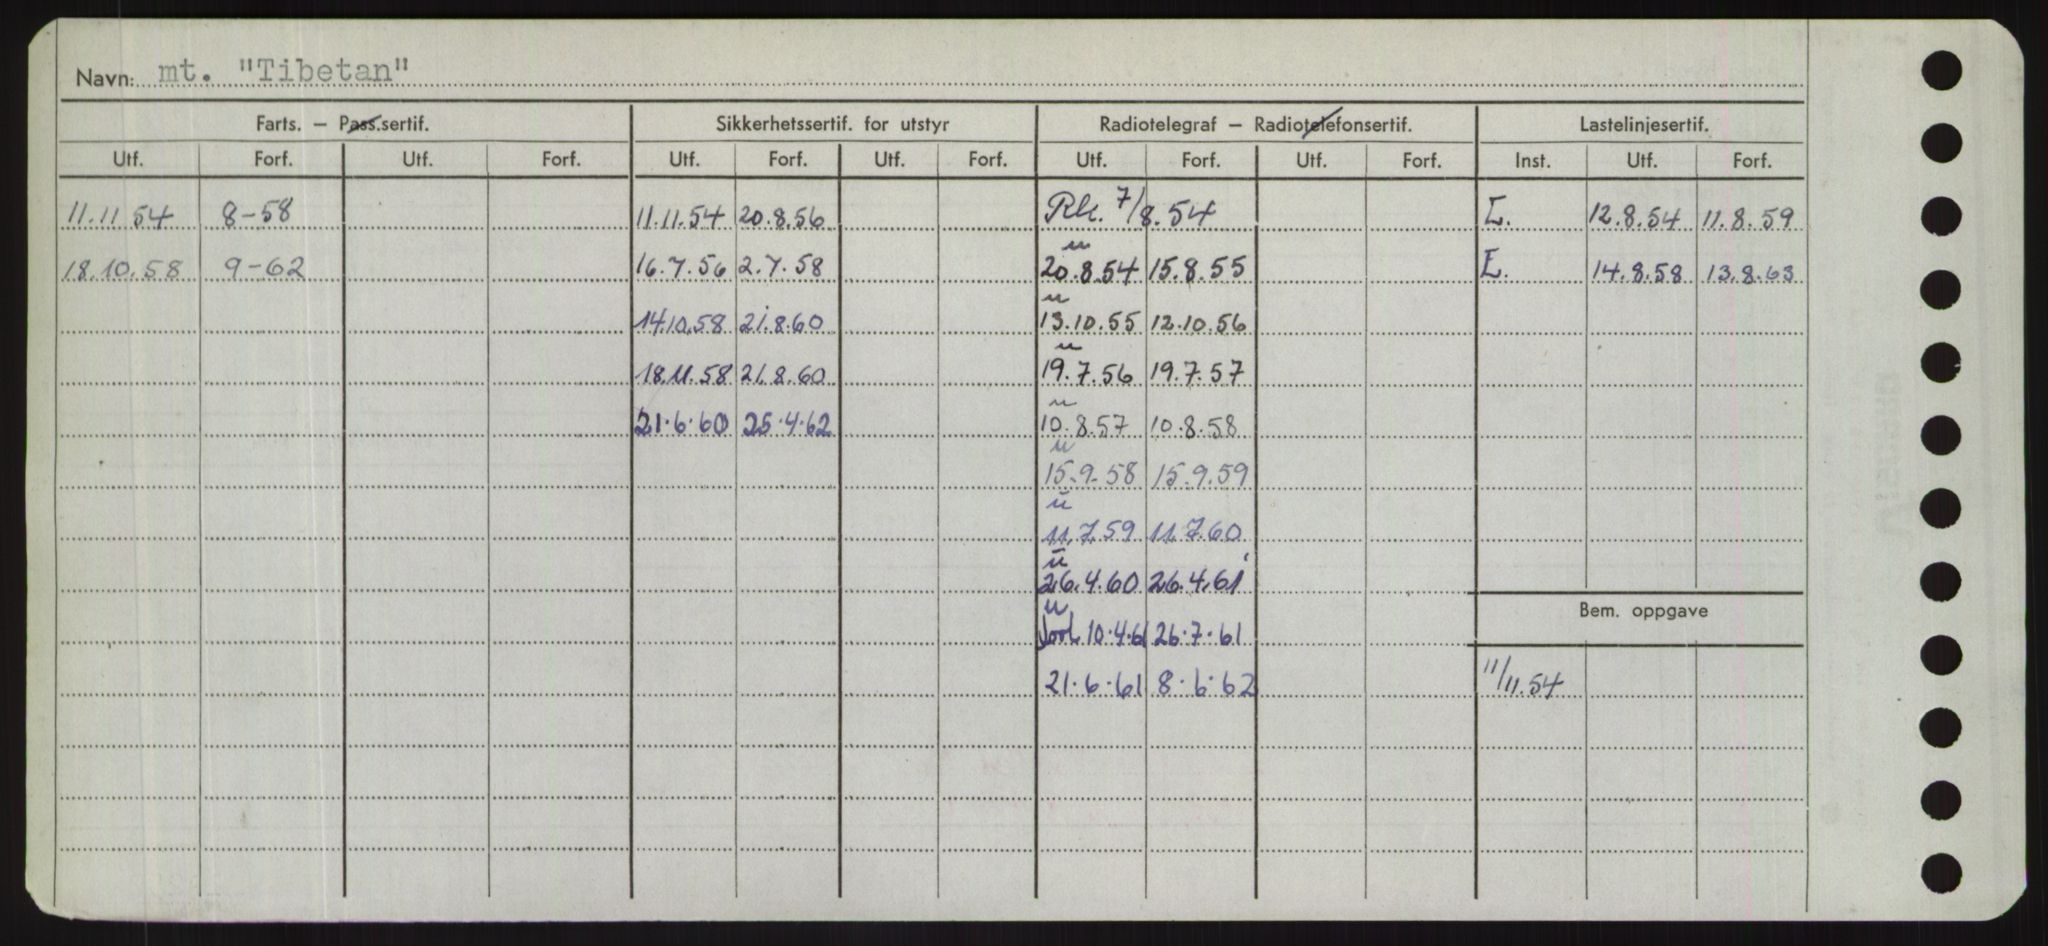 Navn: mt. "Tibetan"
Farts. — Pass.sertif. Sikkerhetssertif. for utstyr Radiotelegraf — Radiotelefonsertif. Lastelinjesertif.
Utf. Forf. Utf. Forf. Utf. Forf. Utf. Forf. Utf. Forf. Utf. Forf. Inst. Utf. Forf.
11.11 54 8-58 11.11.54 20.8.56 7/8.54 E. 12.8.54 11.8.59
u
18.10.58 9-62 16.7.56 2.7.58 20.8.54 15.8.55 E. 14.8.58 13.8.63
u
14.10.58 21.8.60 13.10.55 12.10.56
u
18.11.58 21.8.60 19.7.56 19.7.57
u
21.6.60 25.4.62 10.8.57 10.8.58
u
15.9.58 15.9.59
u
11.7.59 11.7.60
u
26.4.60 26.4.61
u
Bem. oppgave
10.4.61 26.7.61
21.6.61 8.6.62 11/11.54